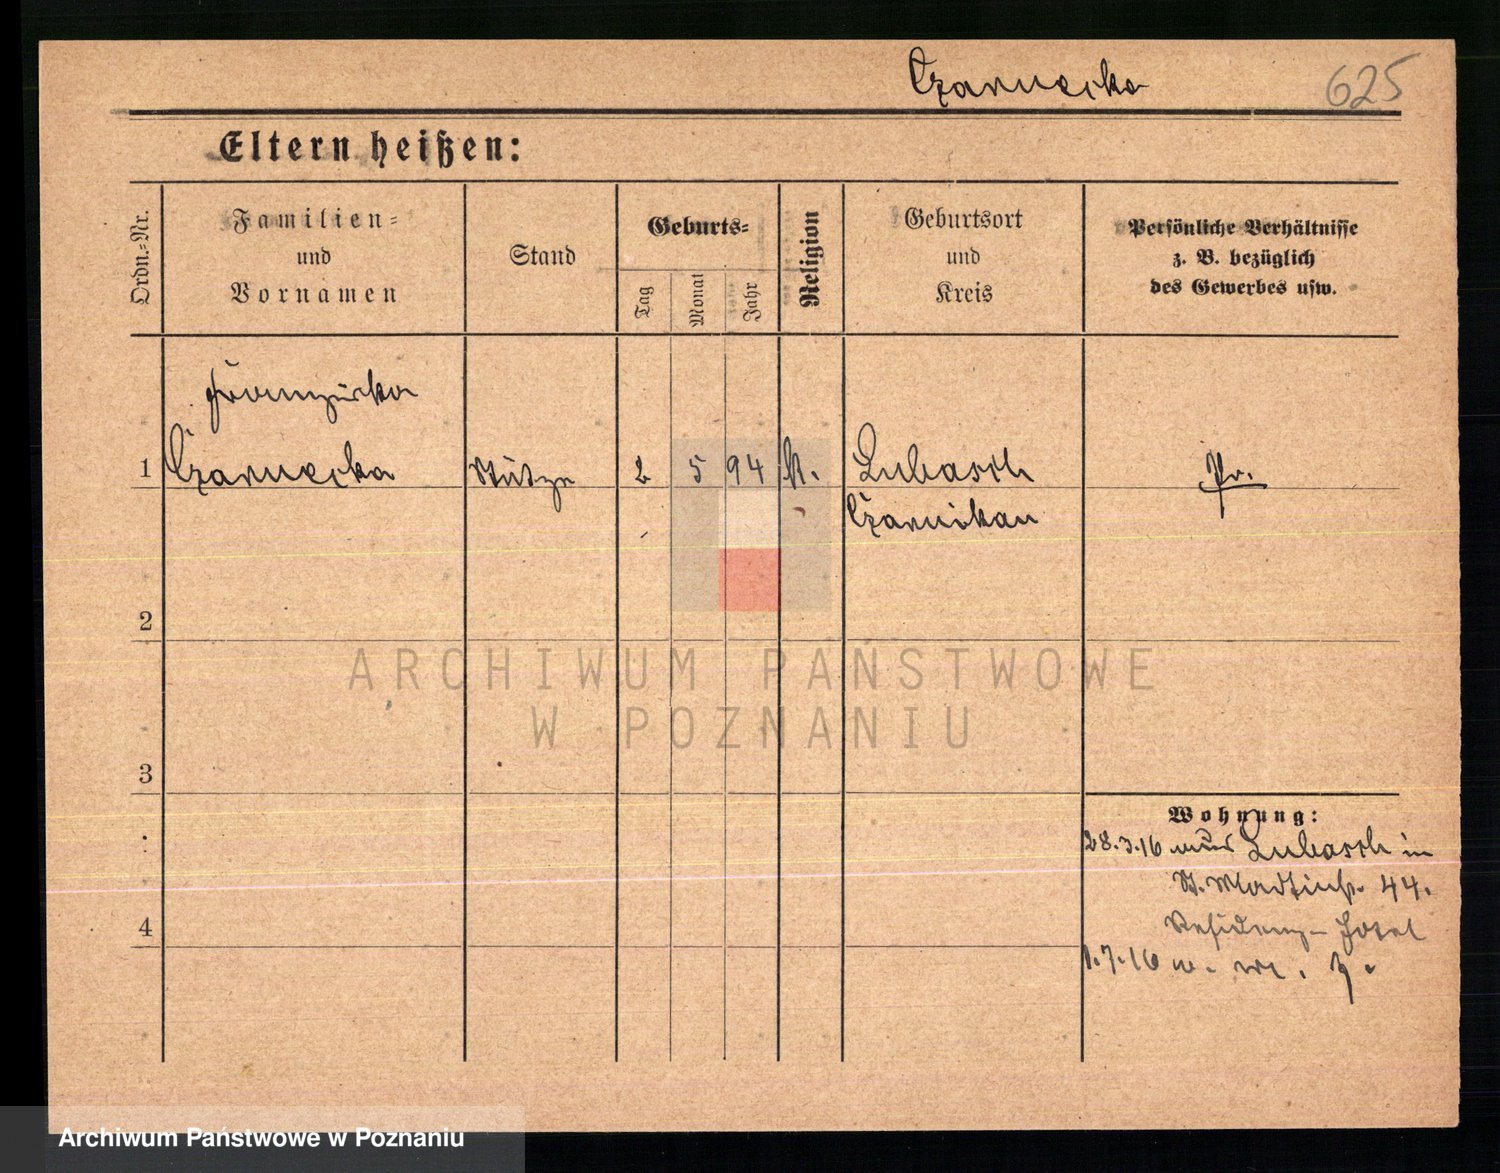 Czarnecka
625
Eltern heißen:
Ordn.=Nr.
Familien=
und
Vornamen
Stand
Geburts=
Tag
Monat
Jahr
Religion
Geburtsort
und
Kreis
Persönliche Verhältnisse
z. B. bezüglich
des Gewerbes usw.
Franziska
1 Czarnecka Stütze 2 5 94 k. Lubasch Pr.
Czarnikau
2
ARCHIWUM PAŃSTWOWE
W POZNANIU
3
Wohnung:
28.3.16 Lubasch in
St. Martinstr. 44.
Residenz-Hotel
4
1.7.16
Archiwum Państwowe w Poznaniu